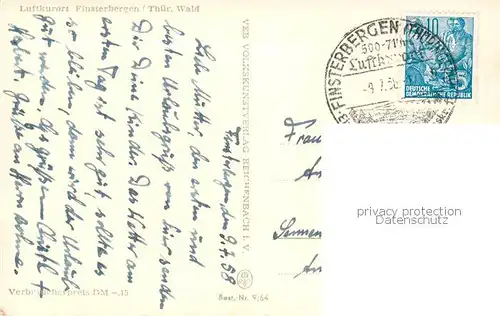 Luftkurort Finsterbergen / Thür. Wald
Finsterbergen, den 9.7.58
Liebe Mutter, den ersten und
besten Urlaubsgruß von hier senden
Dir Deine Kinder. Das Wetter am
ersten Tag ist sehr gut, sollte es
so bleiben, dann wird der Urlaub
gut werden. Es grüßen
Herbert. Grüße an Herrn
VEB VOLKSKUNSTVERLAG REICHENBACH i. V.
Verbraucherpreis DM -.15
Best. Nr. 9/64
FINSTERBERGEN (THÜR
500-71
Luftk
-9.7.58
10
DEUTSCHE
DEMOKRATISCHE REPUBLIK
Frau
privacy protection
Datenschutz